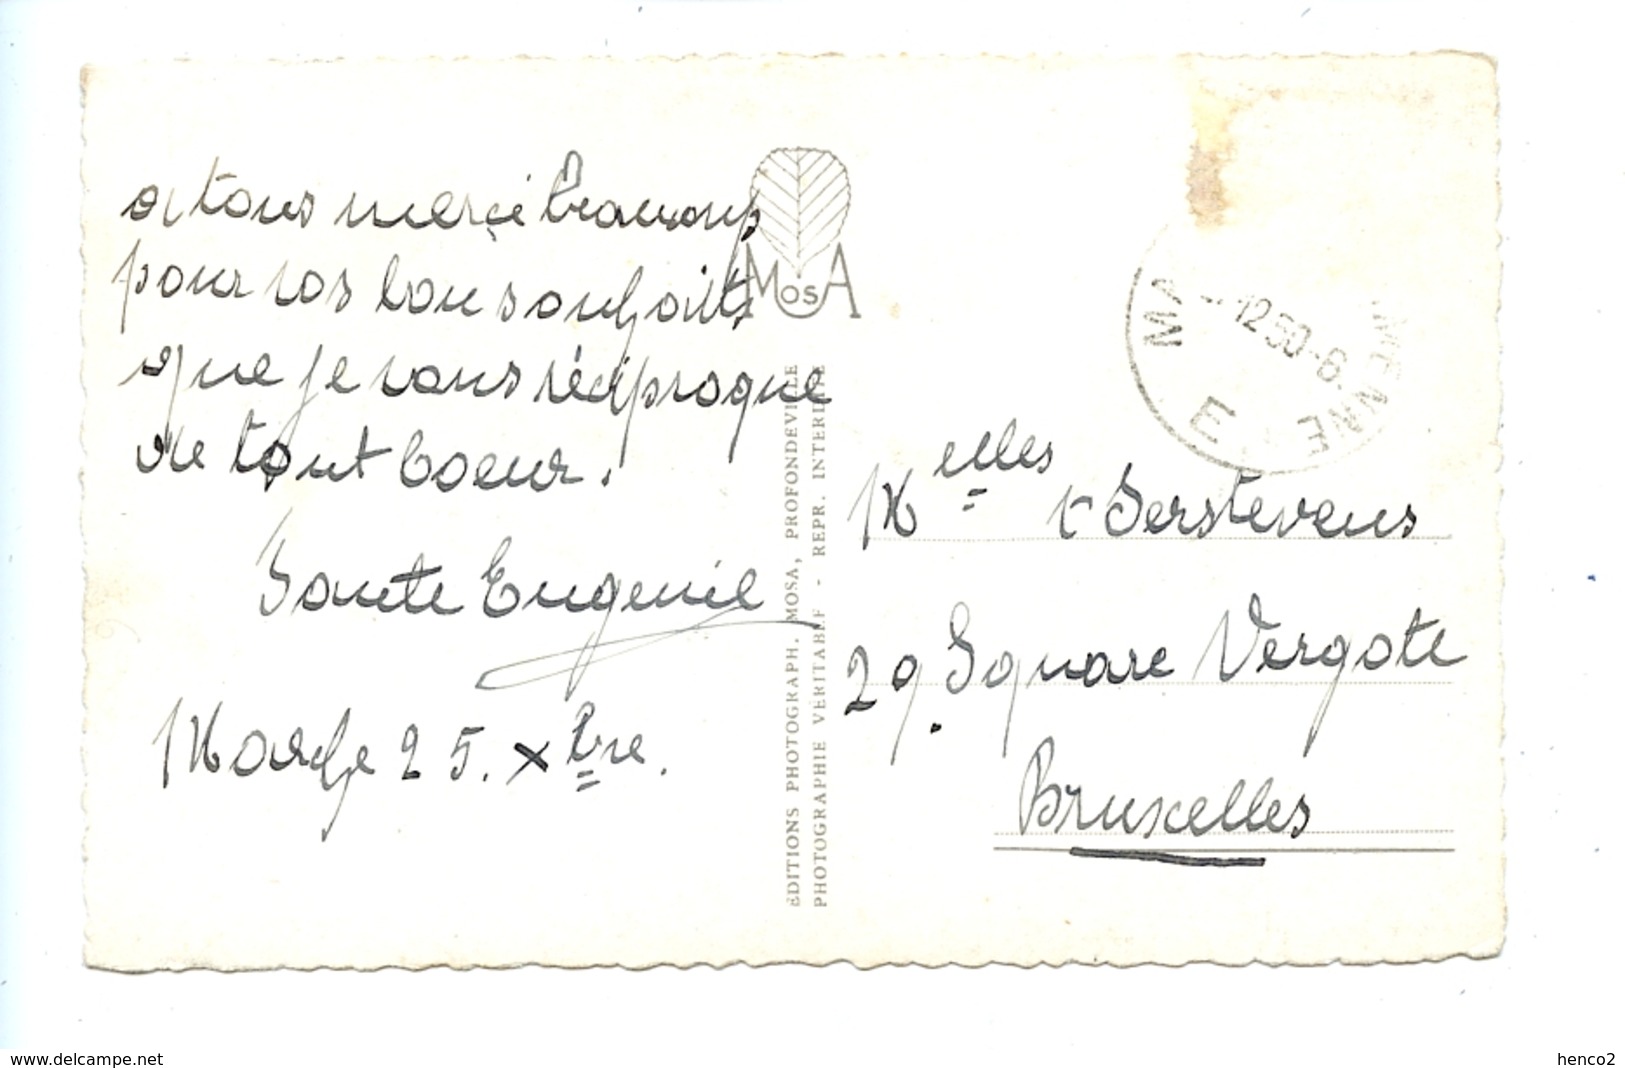 a tous merci beaucoup
pour vos bons souhaits
que je vous réciproque
de tout coeur.
Tante Eugenie
Marche 25. Xbre.
MOSA
EDITIONS PHOTOGRAPH. MOSA, PROFONDEVILLE
PHOTOGRAPHIE VERITABLE - REPR. INTERDITE
MA
12.50-6.
MENNE
E
Melles t'Serstevens
29. Square Vergote
Bruxelles
www.delcampe.net
henco2